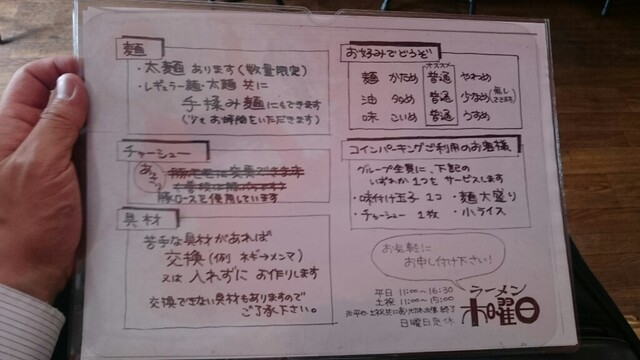 麺
・太麺 あります(数量限定)
・レギュラー麺・太麺 共に
手揉み麺にもできます
(少々お時間をいただきます)
チャーシュー
豚ロースを使用しています
具材
苦手な具材があれば
交換(例 ネギ→メンマ)
又は 入れずに お作りします
交換できない具材もありますので
ご了承下さい。
お好みでどうぞ
オススメ
麺 かため 普通 やわめ
油 多め 普通 少なめ
味 こいめ 普通 うすめ
コインパーキングご利用のお客様
グループ全員に、下記の
いずれか1つを サービスします
・味付け玉子 1コ ・麺大盛り
・チャーシュー 1枚 ・小ライス
お気軽に
お申し付け下さい!
平日 11:00~16:30
土祝 11:00~15:00
日曜日定休
ラーメン
木曜日